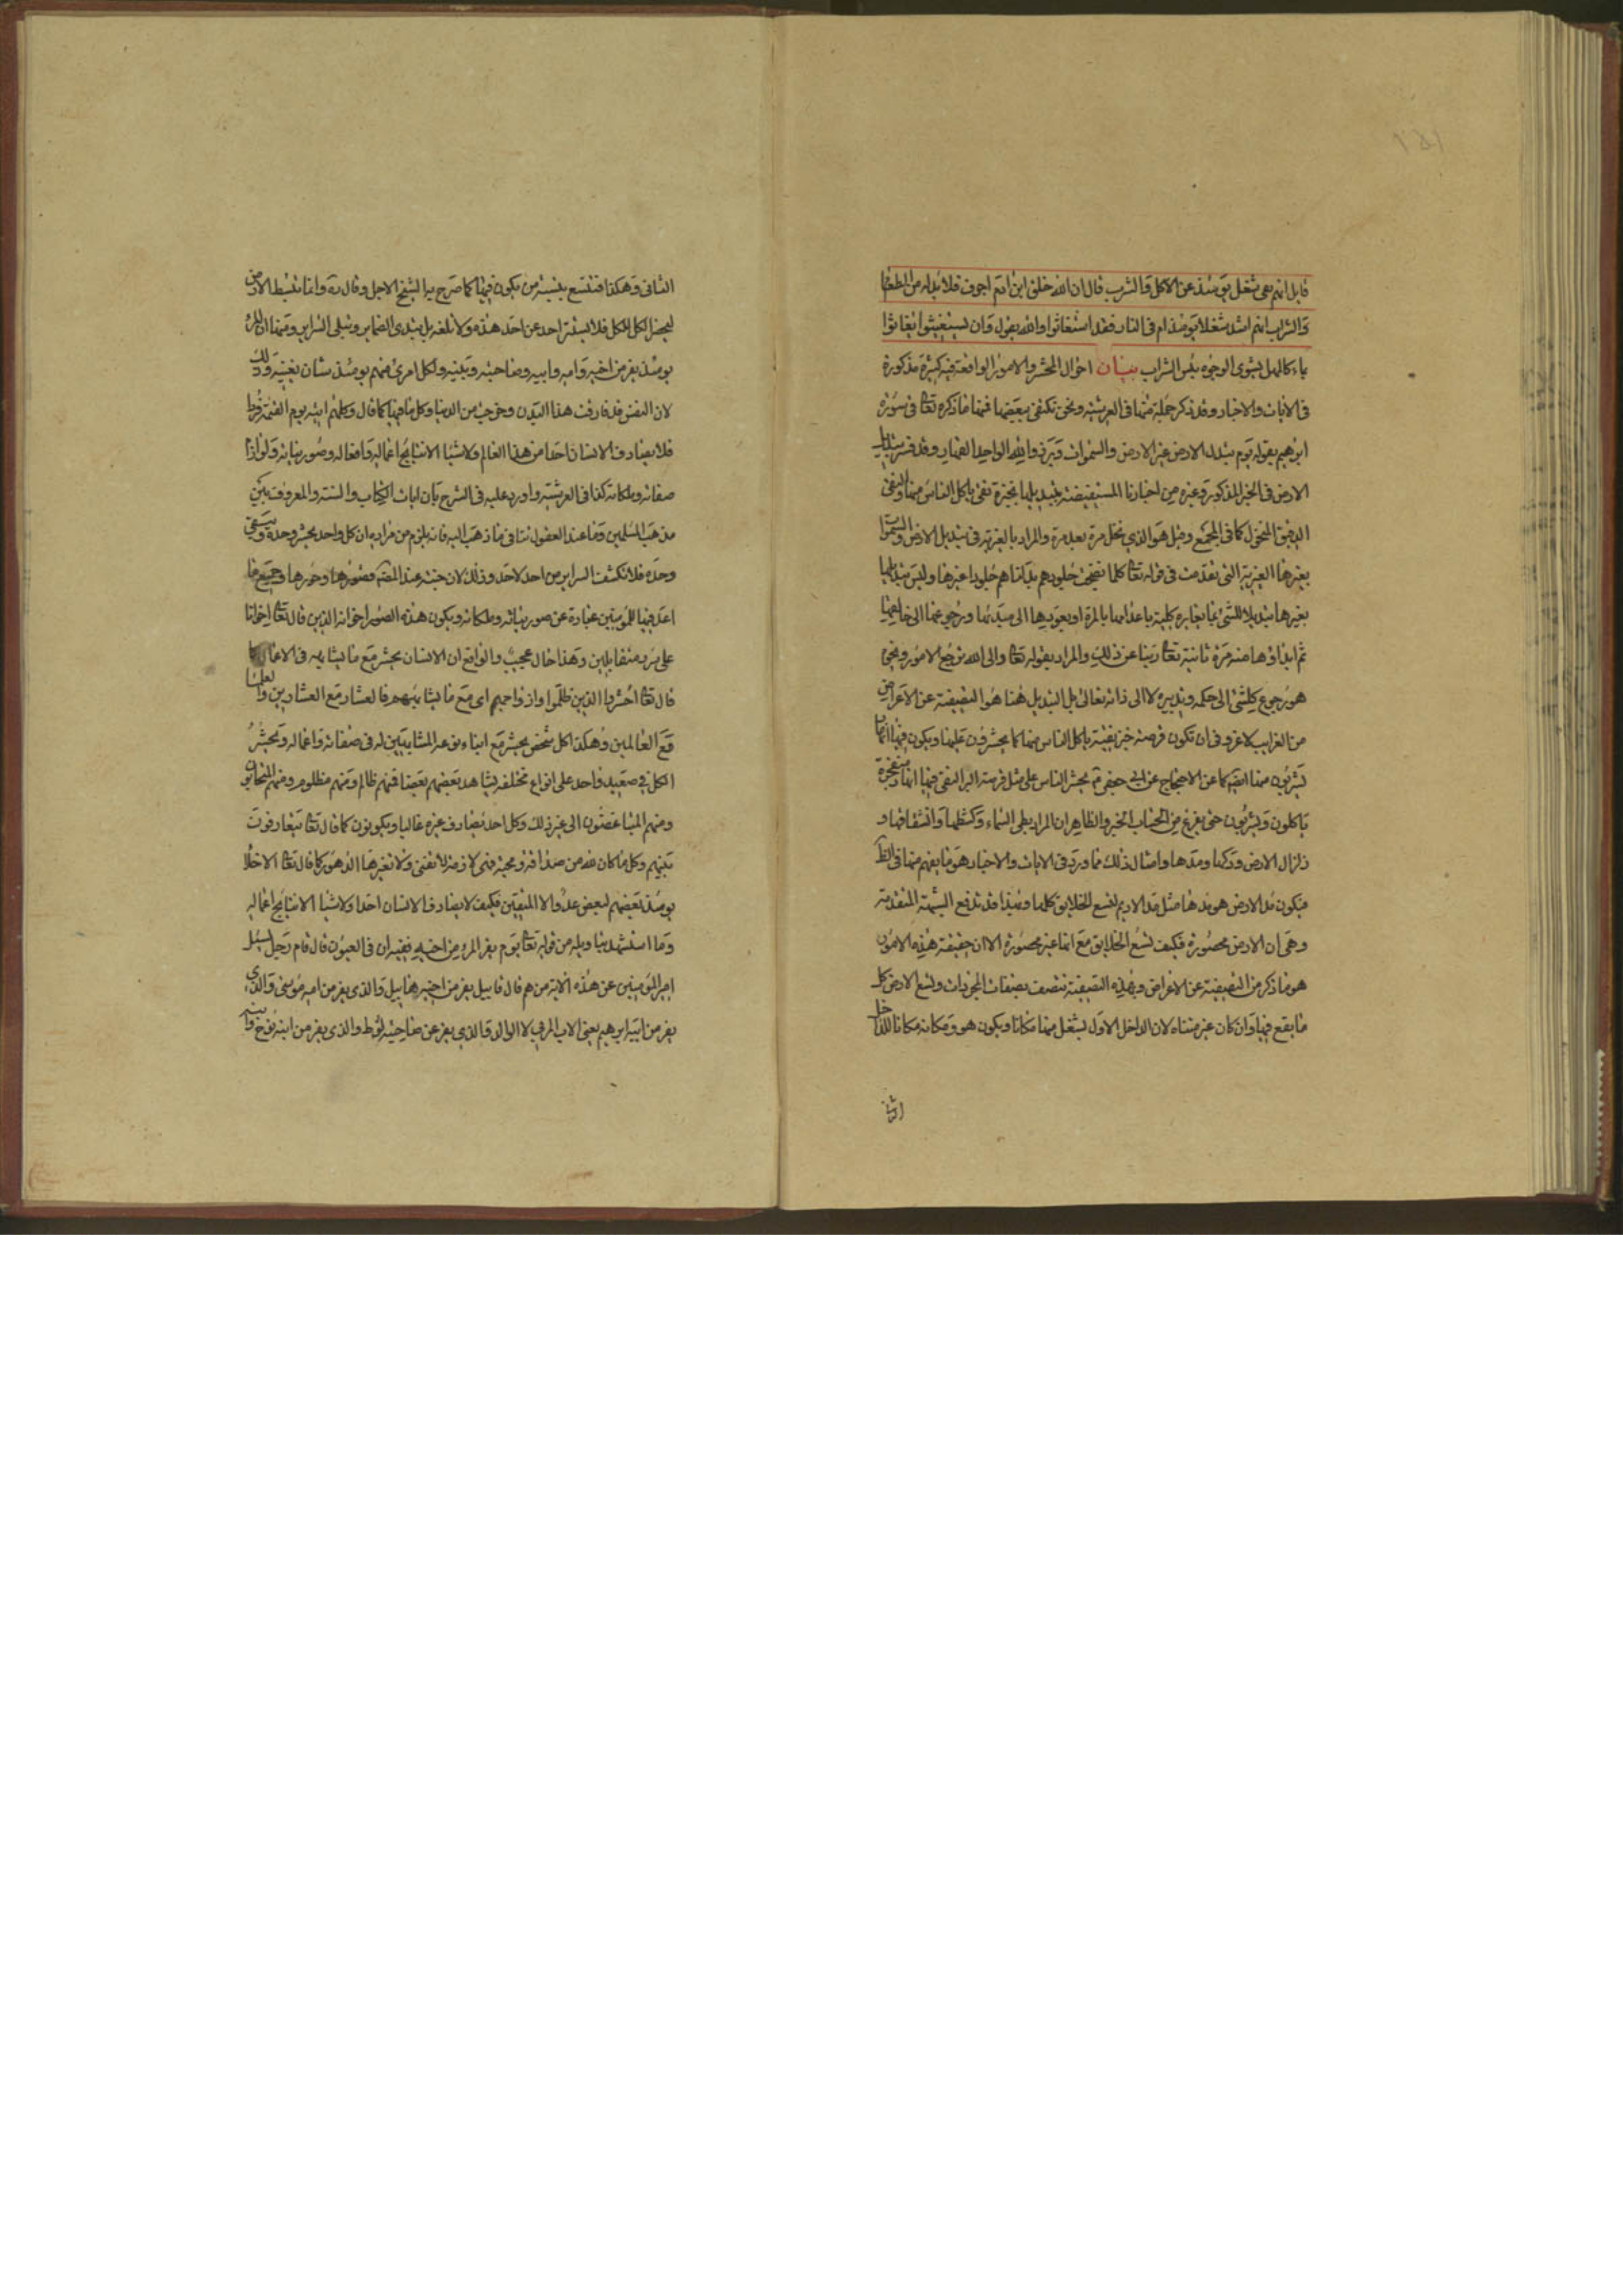 قایل انهم یعی شغل یومئذ عن الاکل والشرب قال ان الله خلق ابن ادم اجوف فلا بد له من الطعام
والشراب اهم اشد شغلا یومئذ ام فی النار فقد استغاثوا والله یقول وان یستغیثوا یغاثوا
بماء کالمهل یشوی الوجوه بئس الشراب بیان احوال المحشر والامور الواقعة فیه کثیرة مذکورة
فی الایات والاخبار وقد ذکر جملة منها فی العرشیة ونحن نکتفی ببعضها فمنها ما ذکره تعا فی سورة
ابرهیم بقوله یوم تبدل الارض غیر الارض والسموات وبرزوا لله الواحد القهار وقد فسر تبدیل
الارض فی الخبر المذکور وغیره من اخبارنا المستفیضة بتبدیلها بخبزة نقی یاکل الناس منها والنقی
الدقیق المنخول کما فی المجمع وقیل هو الذی نخل مرة بعد مرة والمراد بالغیریة فی تبدیل الارض والسموات
بغیرها الغیریة التی تقدمت فی قوله تعا کلما نضجت جلودهم بدلناهم جلودا غیرها ولیس تبدیلها
بغیرها تبدیلا للشئ بما یغایره بکلیته باعدامها بالمرة او بعودها الی مبدئها ورجوعها الی خالقها
ثم ابداؤها منه مرة ثانیة تعا ربنا عن ذلک والمراد بقوله تعا والی الله ترجع الامور ونحوه
هو رجوع کل شئ الی حکمه وتدبیره لا الی ذاته تعالی بل التبدیل هنا هو التصفیة عن الاعراض
من الغرایب لا غرو فی ان تکون قرصة خبز نقیة یاکل الناس منها کما یحشرون علیها ویکون فیها انهار
یشربون منها ایضا کما عن الاحتجاج عن ابی جعفر ع یحشر الناس علی مثل قرصة البر النقی فیها انهار متفجرة
یاکلون ویشربون حتی یفرغ من الحساب الخبر والظاهر ان المراد بطی السماء وکشطها وانشقاقها و
زلزال الارض ودکها ومدها وامثال ذلک مما ورد فی الایات والاخبار هو ما یفهم منها فی الظ
فیکون مد الارض هو مدها مثل مد الادیم لتسع الخلایق کلها وبهذا قد تدفع الشبهة المتقدمة
وهی ان الارض محصورة فکیف تسع الخلایق مع انها غیر محصورة الا ان حقیقة هذه الامور
هو ما ذکر من التصفیة عن الاعراض وبهذه التصفیة تتصف بصفات المجردات وتسع الارض کل
ما یقع فیها وان کان غیر متناه لان الداخل الاول یشغل منها مکانا ویکون هو ومکانه مکانا للداخل
الثانی
الثانی وهکذا فتتسع بنسبة من یکون فیها کما صرح به الشیخ الاجل وقال ره وانما تنبسط الارض
لیحضر الکل للکل فلا یستتر احد عن احد هذه ولا بلغه بل تبدی الضمایر وتبلی السرایر ومنها ان المرء
یومئذ یفر من اخیه وامه وابیه وصاحبته وبنیه ولکل امرئ منهم یومئذ شان یغنیه وذلک
لان النفس قد فارقت هذا البدن وخرجت من الدنیا وکل ما فیها کما قال وکلهم اتیه یوم القیمة فردا
فلا یصادف الانسان احدا من هذا العالم ولا شیئا الا نتایج اعماله وافعاله وصور نیاته ولوازم
صفاته وملکاته کذا فی العرشیة واورد علیه فی الشرح بان ایات الکتاب والسنة والمعروف بین
مذهب المسلمین وما عند العقول تنافی ما ذهب الیه فانه یلزم من مراده ان کل واحد یحشر وحده ویبقی
وحده فلا تکشف السرایر من احد لاحد وذلک لان جنته عند المص وقصورها وحورها وجمیع ما
اعد فیها للمؤمنین عبارة عن صور نیاته وملکاته ویکون هذه الصور اخوانه الذین قال تعا اخوانا
علی سرر متقابلین وهذا حال عجیب والواقع ان الانسان یحشر مع ما یشابهه فی الاعمال کما
قال تعا احشروا الذین ظلموا وازواجهم ای مع ما یشابههم فالعشار مع العشارین والعلماء
مع العالمین وهکذا کل شخص یحشر مع ابناء نوعه المشابهین له فی صفاته واعماله ویحشر
الکل فی صعید واحد علی انواع مختلفة یشاهد بعضهم بعضا فمنهم ظالم ومنهم مظلوم ومنهم المتحابون
ومنهم المتباغضون الی غیر ذلک وکل احد یصادف غیره غالبا ویکونون کما قال تعا یتعارفون
بینهم وکل ما کان لله من صداقة ومحبة فهی لازمة لا تفنی ولا تغیرها الدهور کما قال تعا الاخلاء
یومئذ بعضهم لبعض عدو الا المتقین فکیف لا یصادف الانسان احدا ولا شیئا الا نتایج اعماله
وما استشهد بتاویله من قوله تعا یوم یفر المرء من اخیه ففیه ان فی العیون قال قام رجل یسئل
امیر المؤمنین عن هذه الایة من هم قال قابیل یفر من اخیه هابیل والذی یفر من امه موسی والذی
یفر من ابیه ابرهیم یعنی الاب المربی لا الوالد والذی یفر عن صاحبته لوط والذی یفر من ابنه نوح وابنه